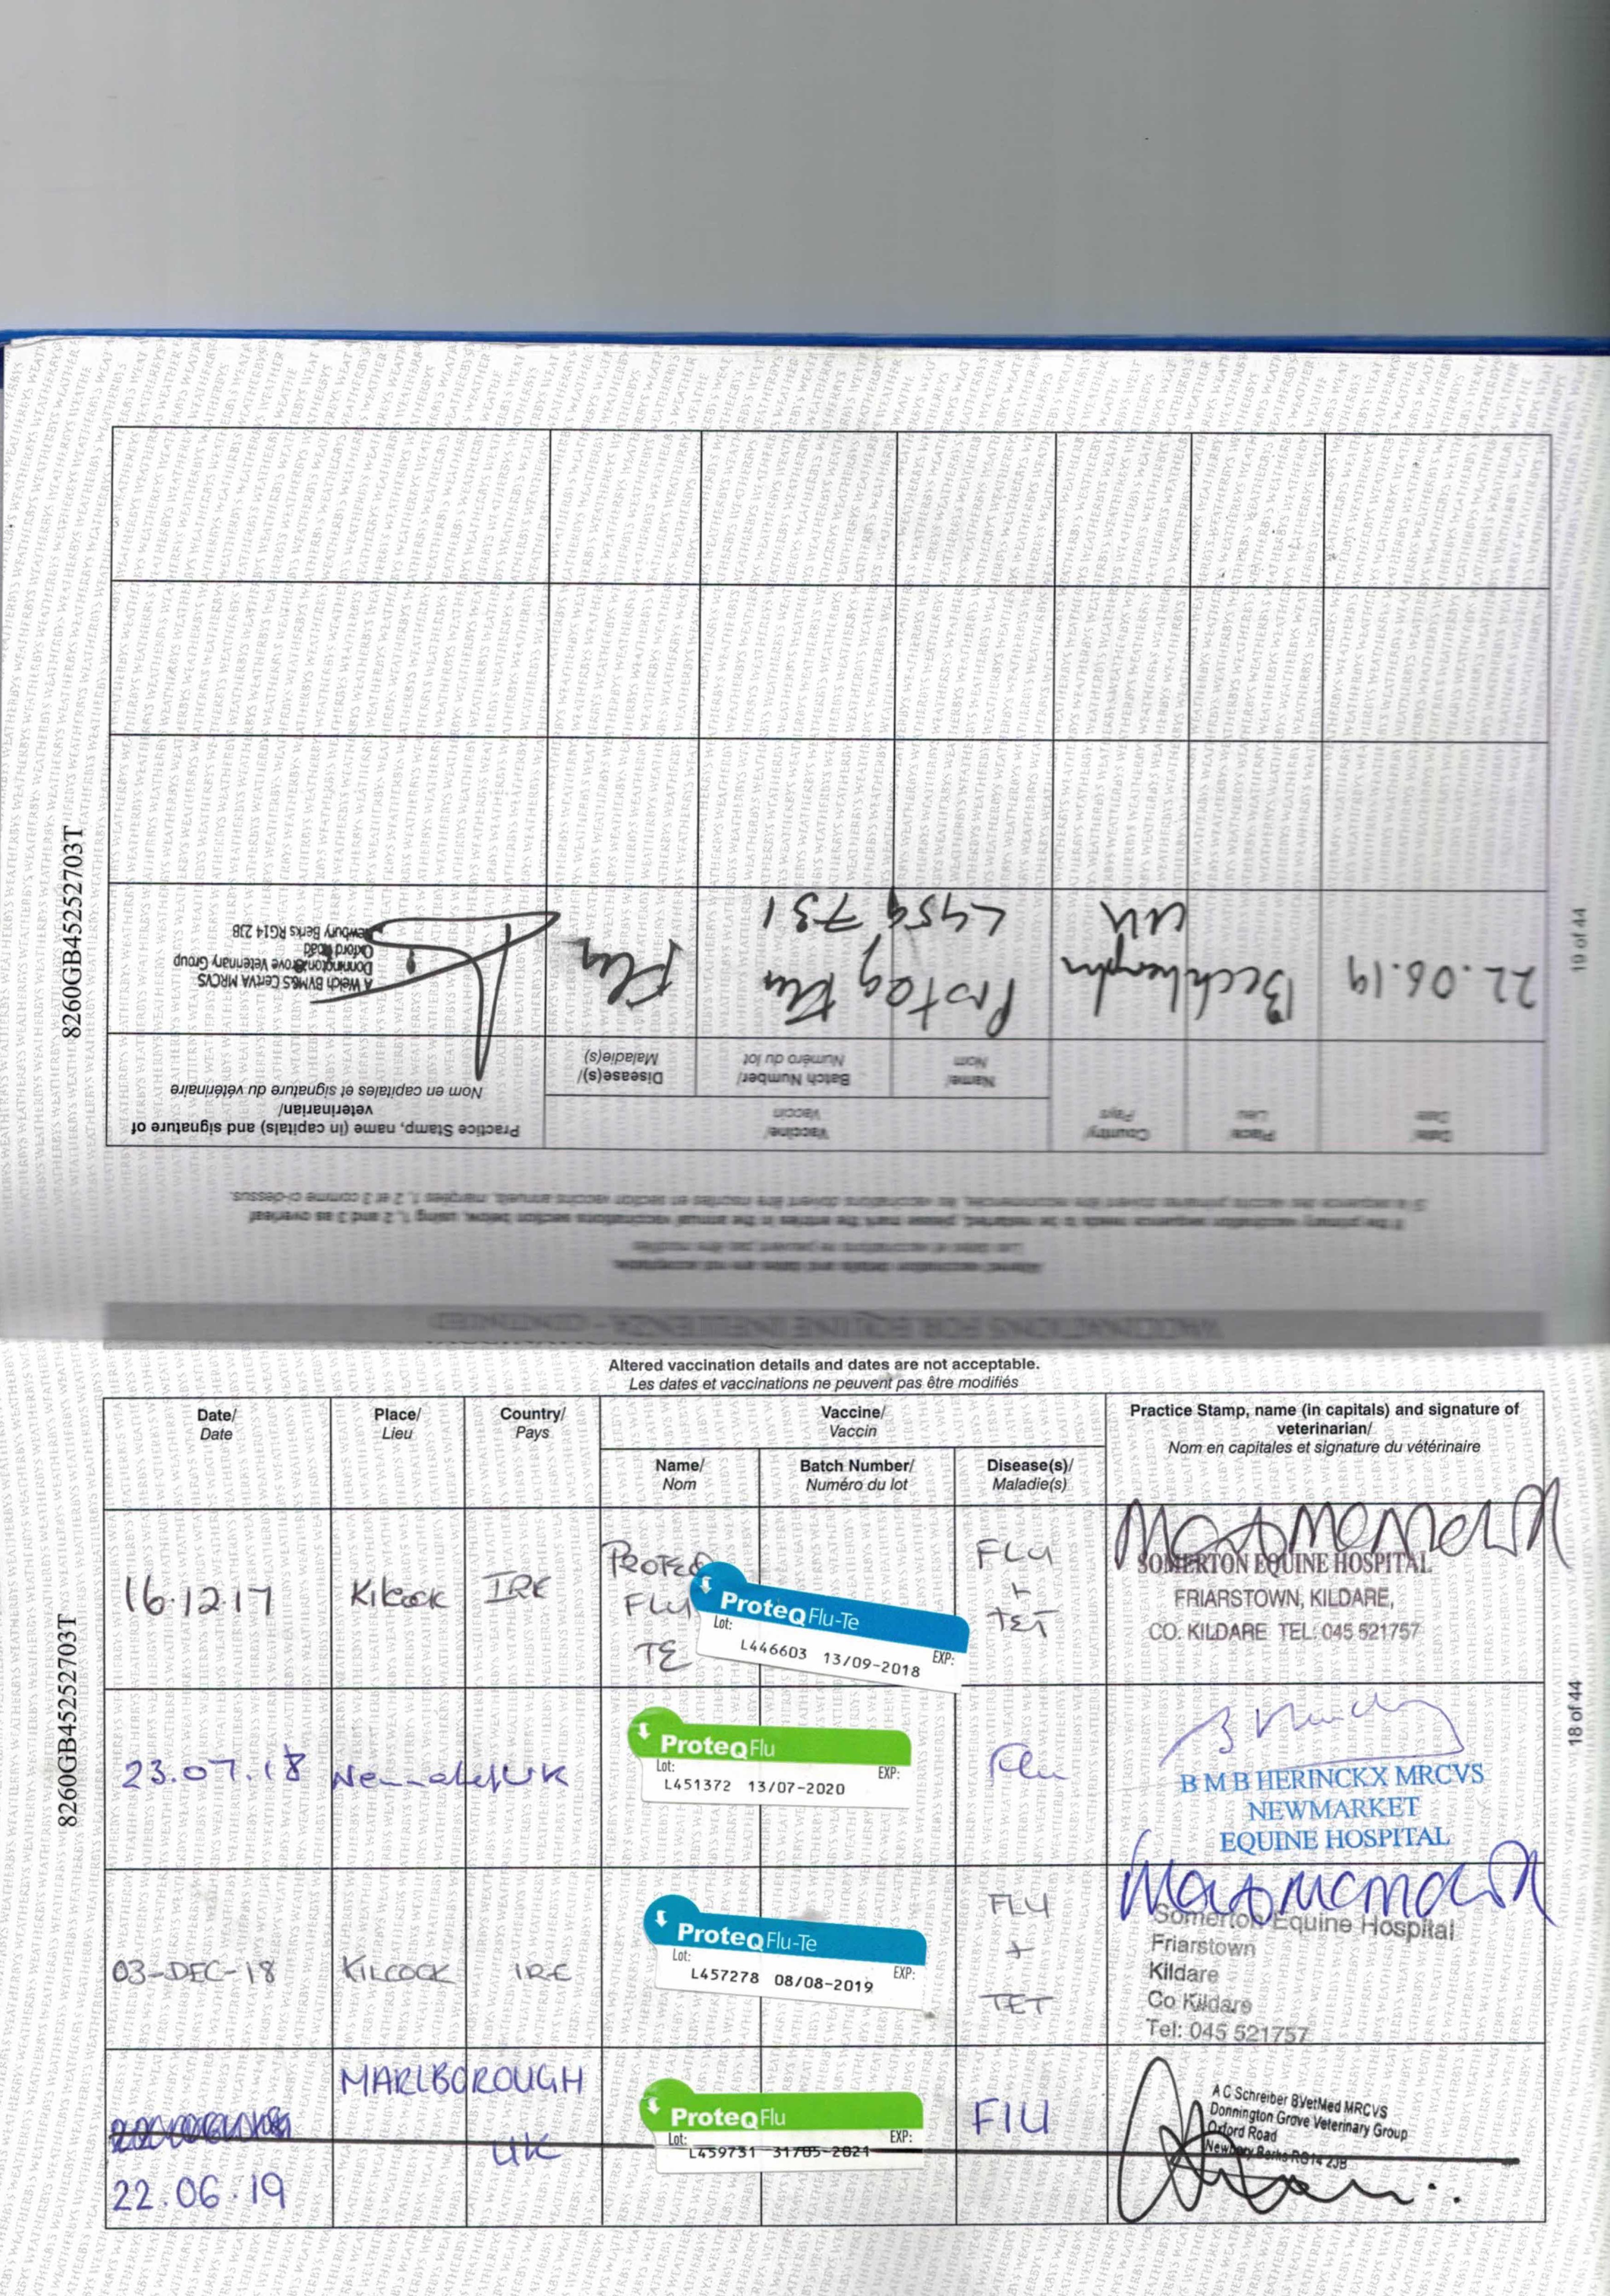 8260GB45252703T
19 of 44
VACCINATIONS FOR EQUINE INFLUENZA - CONTINUED
Altered vaccination details and dates are not acceptable.
Les dates et vaccinations ne peuvent pas être modifiés
If the primary vaccination sequence needs to be restarted, please mark the entries in the annual vaccinations section below, using 1, 2 and 3 as overleaf
Si la séquence des vaccins primaires doivent être recommencées, les vaccinations doivent être inscrites en section vaccins annuels, marquées 1, 2 et 3 comme ci-dessus.
Date/
Date
Place/
Lieu
Country/
Pays
Vaccine/
Vaccin
Name/
Nom
Batch Number/
Numéro du lot
Disease(s)/
Maladie(s)
Practice Stamp, name (in capitals) and signature of
veterinarian/
Nom en capitales et signature du vétérinaire
22.06.19
UK
L459731
Flu
A Welch BVM&S CertVA MRCVS
Donnington Grove Veterinary Group
Oxford Road
Newbury Berks RG14 2JB
8260GB45252703T
18 of 44
Altered vaccination details and dates are not acceptable.
Les dates et vaccinations ne peuvent pas être modifiés
Date/
Date
Place/
Lieu
Country/
Pays
Vaccine/
Vaccin
Name/
Nom
Batch Number/
Numéro du lot
Disease(s)/
Maladie(s)
Practice Stamp, name (in capitals) and signature of
veterinarian/
Nom en capitales et signature du vétérinaire
16.12.17
Kilcock
IRE
PROTEQ
FLU
TE
ProteQ Flu-Te
Lot:
EXP:
L446603 13/09-2018
FLU
+
TET
SOMERTON EQUINE HOSPITAL
FRIARSTOWN, KILDARE,
CO. KILDARE TEL: 045 521757
23.07.18
Newmarket
UK
ProteQ Flu
Lot:
EXP:
L451372 13/07-2020
Flu
B M B HERINCKX MRCVS
NEWMARKET
EQUINE HOSPITAL
03-DEC-18
KILCOCK
IRE
ProteQ Flu-Te
Lot:
EXP:
L457278 08/08-2019
FLU
+
TET
Somerton Equine Hospital
Friarstown
Kildare
Co Kildare
Tel: 045 521757
22.06.19
MARLBOROUGH
UK
ProteQ Flu
Lot:
EXP:
L459731 31/05-2021
FLU
A C Schreiber BVetMed MRCVS
Donnington Grove Veterinary Group
Oxford Road
Newbury Berks RG14 2JB